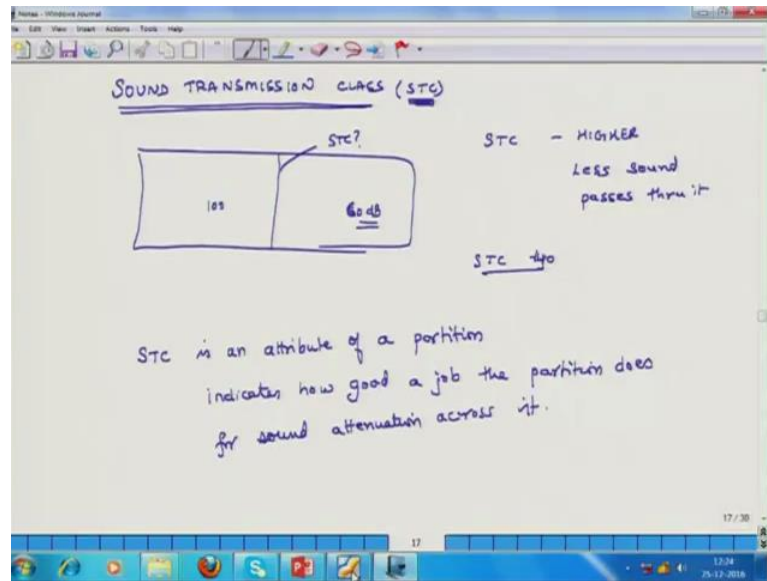 Notes - Windows Journal
File Edit View Insert Actions Tools Help
SOUND TRANSMISSION CLASS (STC)
STC?
100
60 dB
STC - HIGHER
Less sound
passes thru it
STC 40
STC is an attribute of a partition
indicates how good a job the partition does
for sound attenuation across it.
17 / 30
17
12:24
25-12-2016